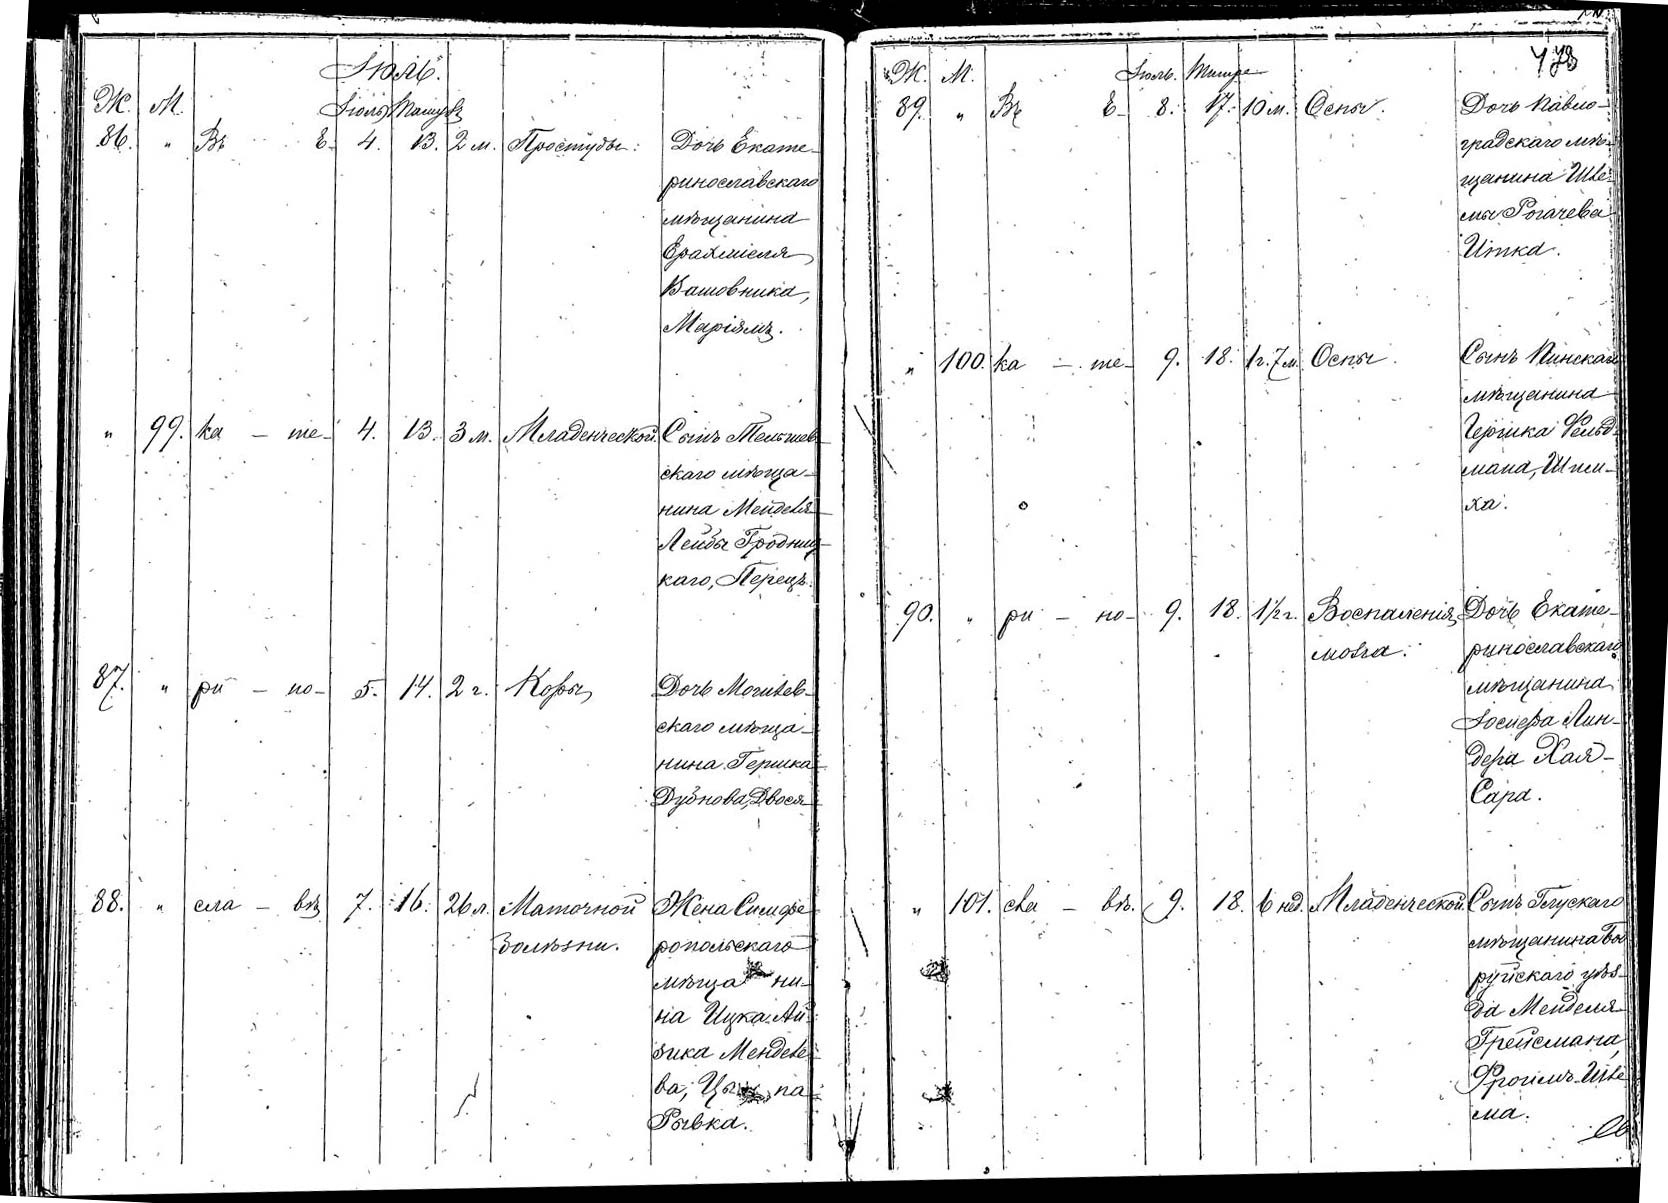 Іюль.
Ж. М. Іюль Тамузъ
86. " Въ Е- 4. 13. 2 м. Простуды. Дочь Екате-
ринославскаго
мѣщанина
Ерахміеля
Вашовника,
Маріямъ.
" 99. ка - те- 4. 13. 3 м. Младенческой. Сынъ Тельшев-
скаго мѣща-
нина Мендель
Лейбы Гродниц-
каго, Перецъ.
87. " ри - но- 5. 14. 2 г. Кори, Дочь Могилев-
скаго мѣща-
нина Гершка
Дубнова, Двося
88. " сла - вѣ 7. 16. 26 л. Маточной Жена Симфе-
болѣзни. ропольскаго
мѣща ни-
на Ицка Ай-
зика Менделе-
ва, па
Рывка.
478
Ж. М. Іюль.
89. " Въ Е- 8. 17. 10 м. Оспы. Дочь Павло-
градскаго мѣ-
щанина Шле-
мы Рогачева
Итка.
" 100. ка - те- 9. 18. 1 г. 7 м. Оспы. Сынъ Пинскаго
мѣщанина
Гершка Фельд-
мана, Шим-
ха.
90. " ри - но- 9. 18. 1½ г. Воспаленія Дочь Екате-
мозга. ринославскаго
мѣщанина
Іосифа Лин-
дера Хая-
Сара.
" 101. сла - вѣ. 9. 18. 6 нед. Младенческой. Сынъ Глускаго
мѣщанина Бо-
руйскаго уѣз-
да Менделя
Грейсмана,
Фроимъ Шле
ма.